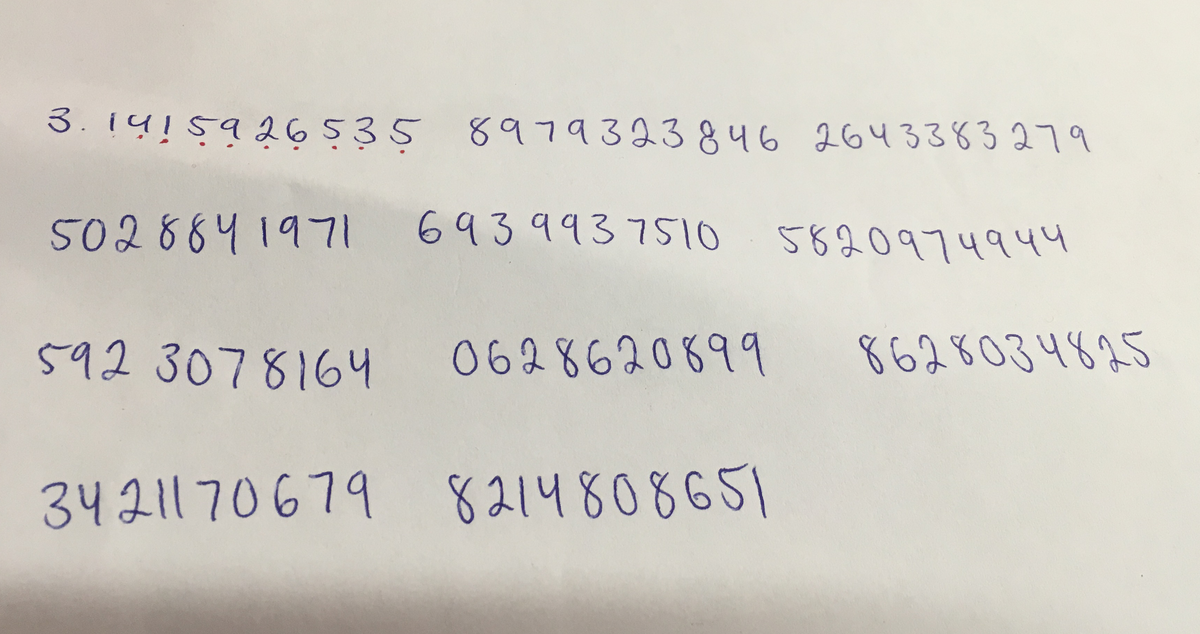 3.1415926535 8979323846 2643383279
5028841971 6939937510 5820974944
5923078164 0628620899 8628034825
3421170679 8214808651